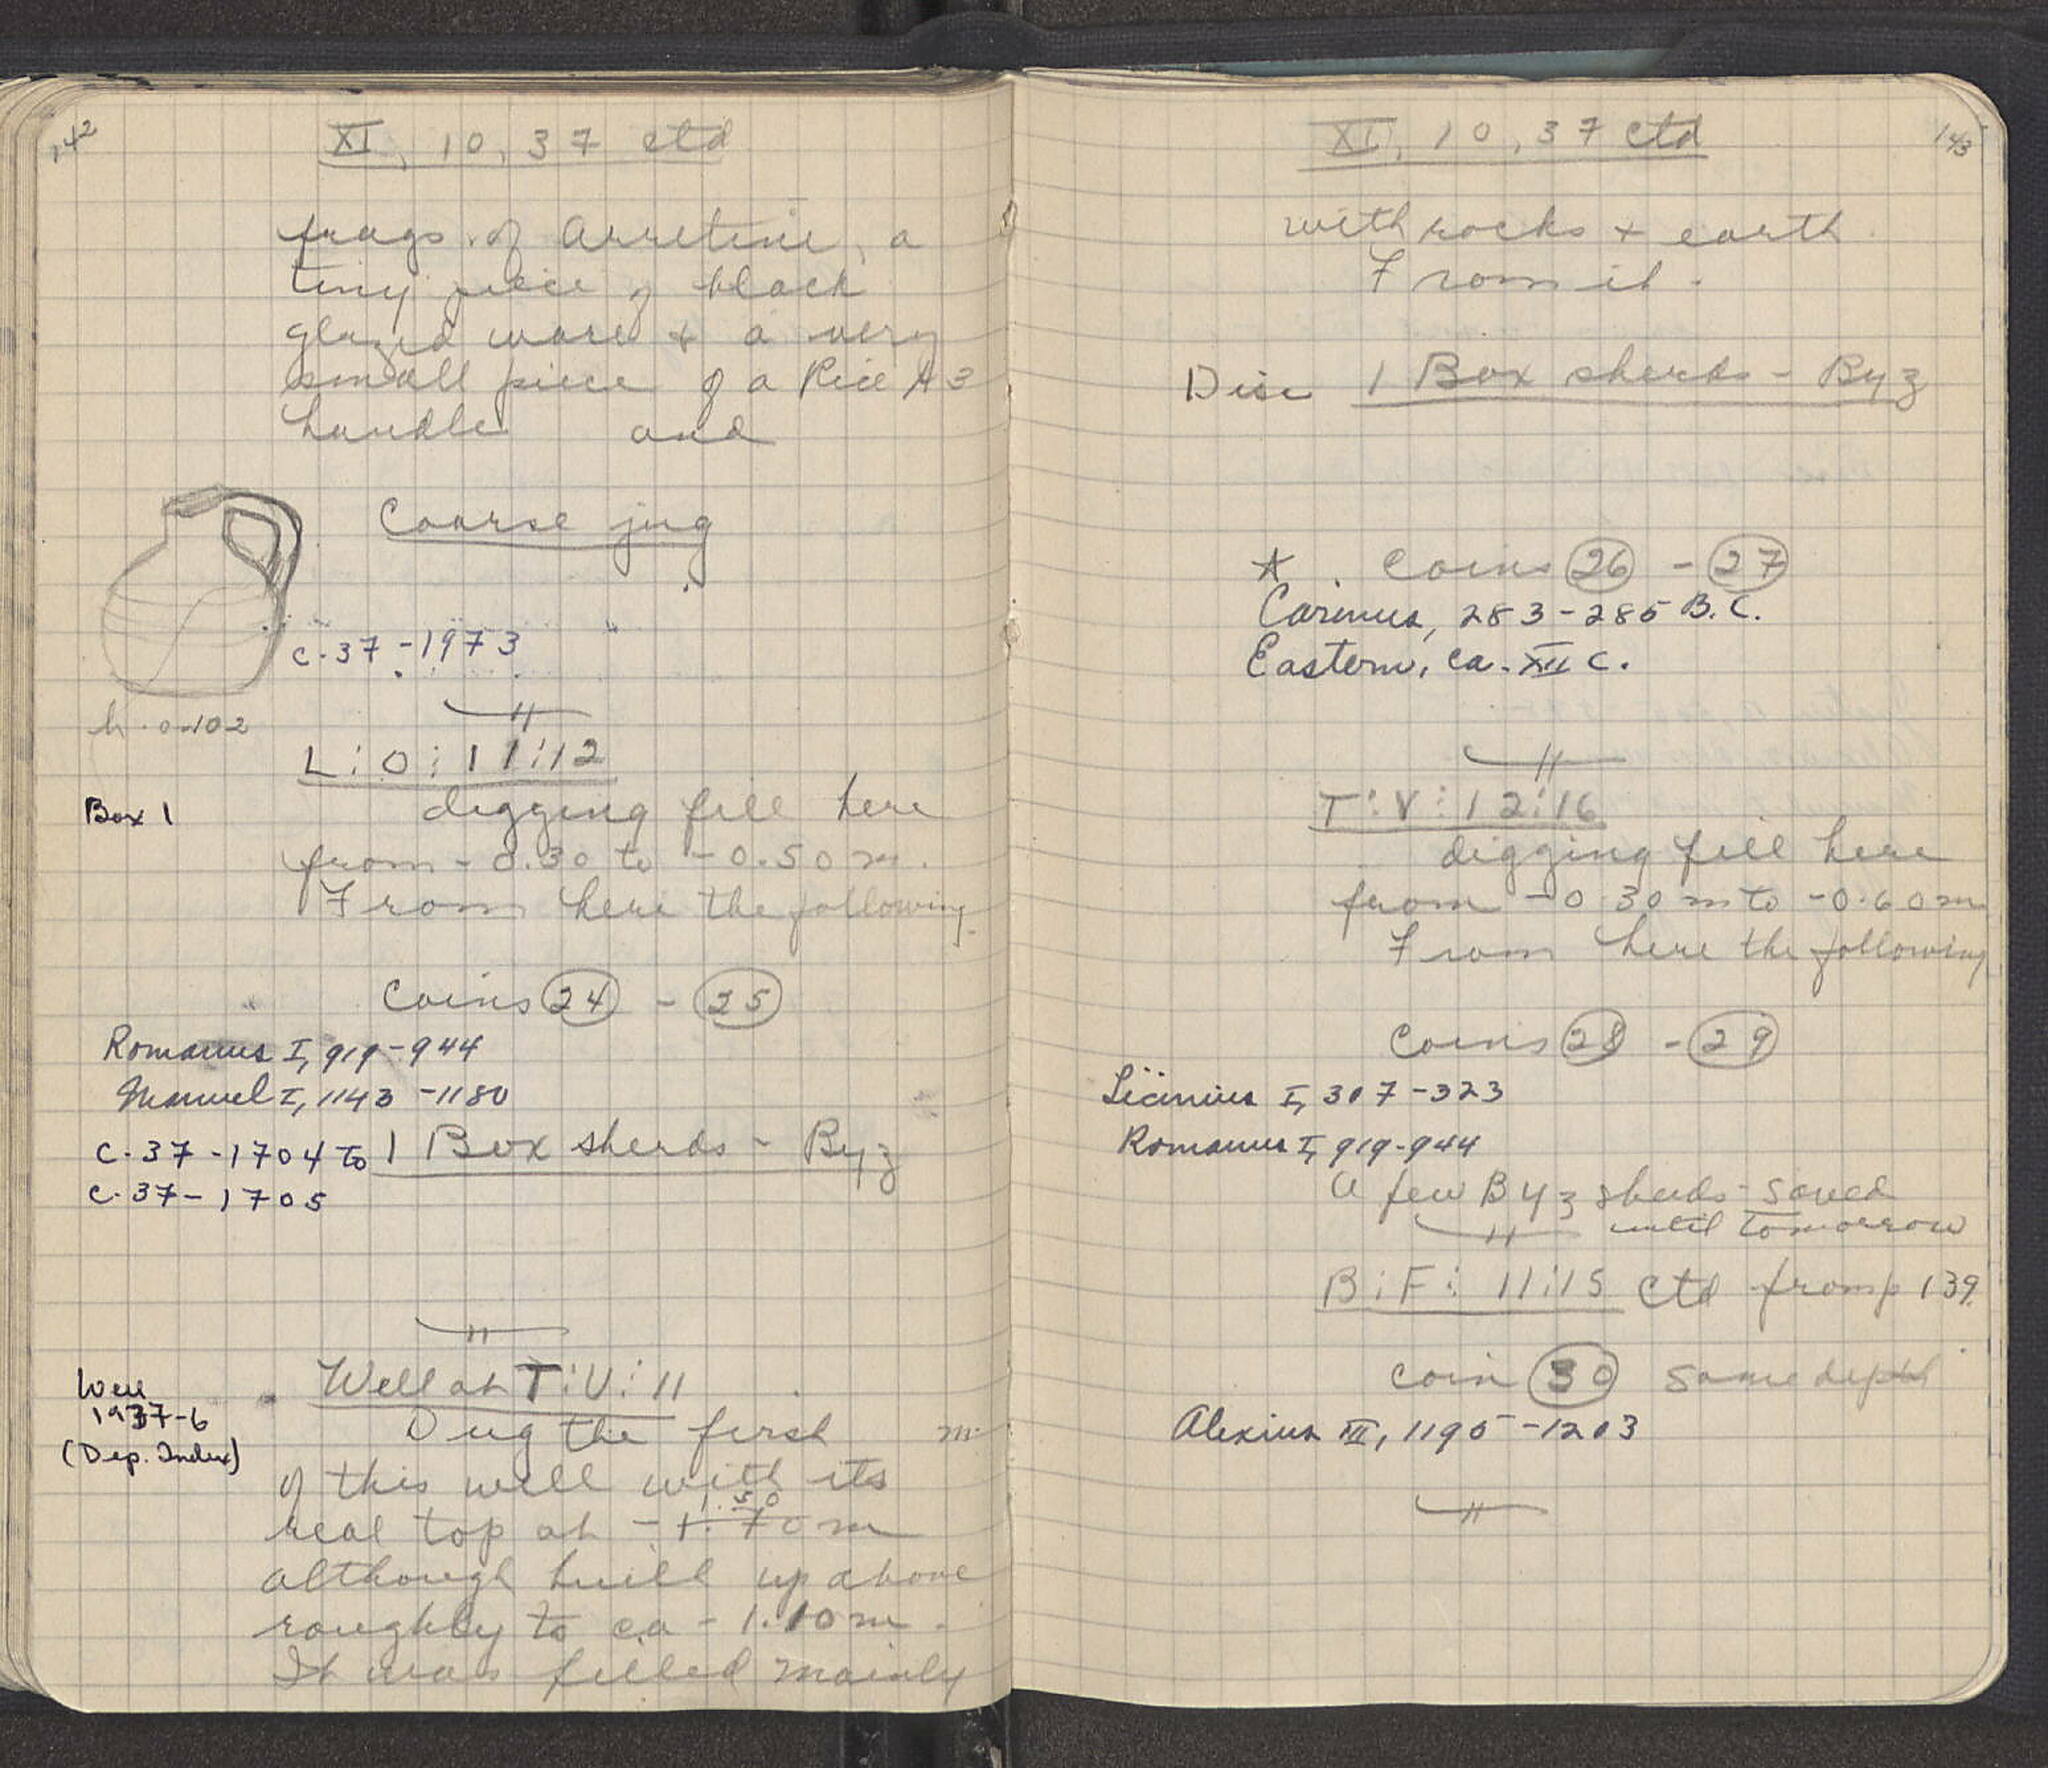 142
XI, 10, 37 ctd
frags. of Arretine, a
tiny piece of black
glazed ware + a very
small piece of a Rice A 3
handle and
Coarse jug
C-37-1973
h. 0.102
L:O:11:12
Box 1
digging fill here
from -0.30 to -0.50 m.
From here the following
coins 24 - 25
Romanus I, 919-944
Manuel I, 1143-1180
C-37-1704 to
C-37-1705
1 Box sherds - Byz
Well at T:V:11
Well
1937-6
(Dep. Index)
Dug the first m.
of this well with its
real top at -1.70 m
1.50
although built up above
roughly to ca -1.10 m.
It was filled mainly
143
XI, 10, 37 ctd
with rocks + earth
From it.
Disc 1 Box sherds - Byz
* coins 26 - 27
Carinus, 283-285 B.C.
Eastern, ca. XII C.
T:V:12:16
digging fill here
from -0.30 m to -0.60 m
From here the following
coins 28 - 29
Licinius I, 307-323
Romanus I, 919-944
A few Byz sherds - saved
until tomorrow
B:F:11:15 ctd from p 139.
coin 30 same depth
Alexius III, 1195-1203